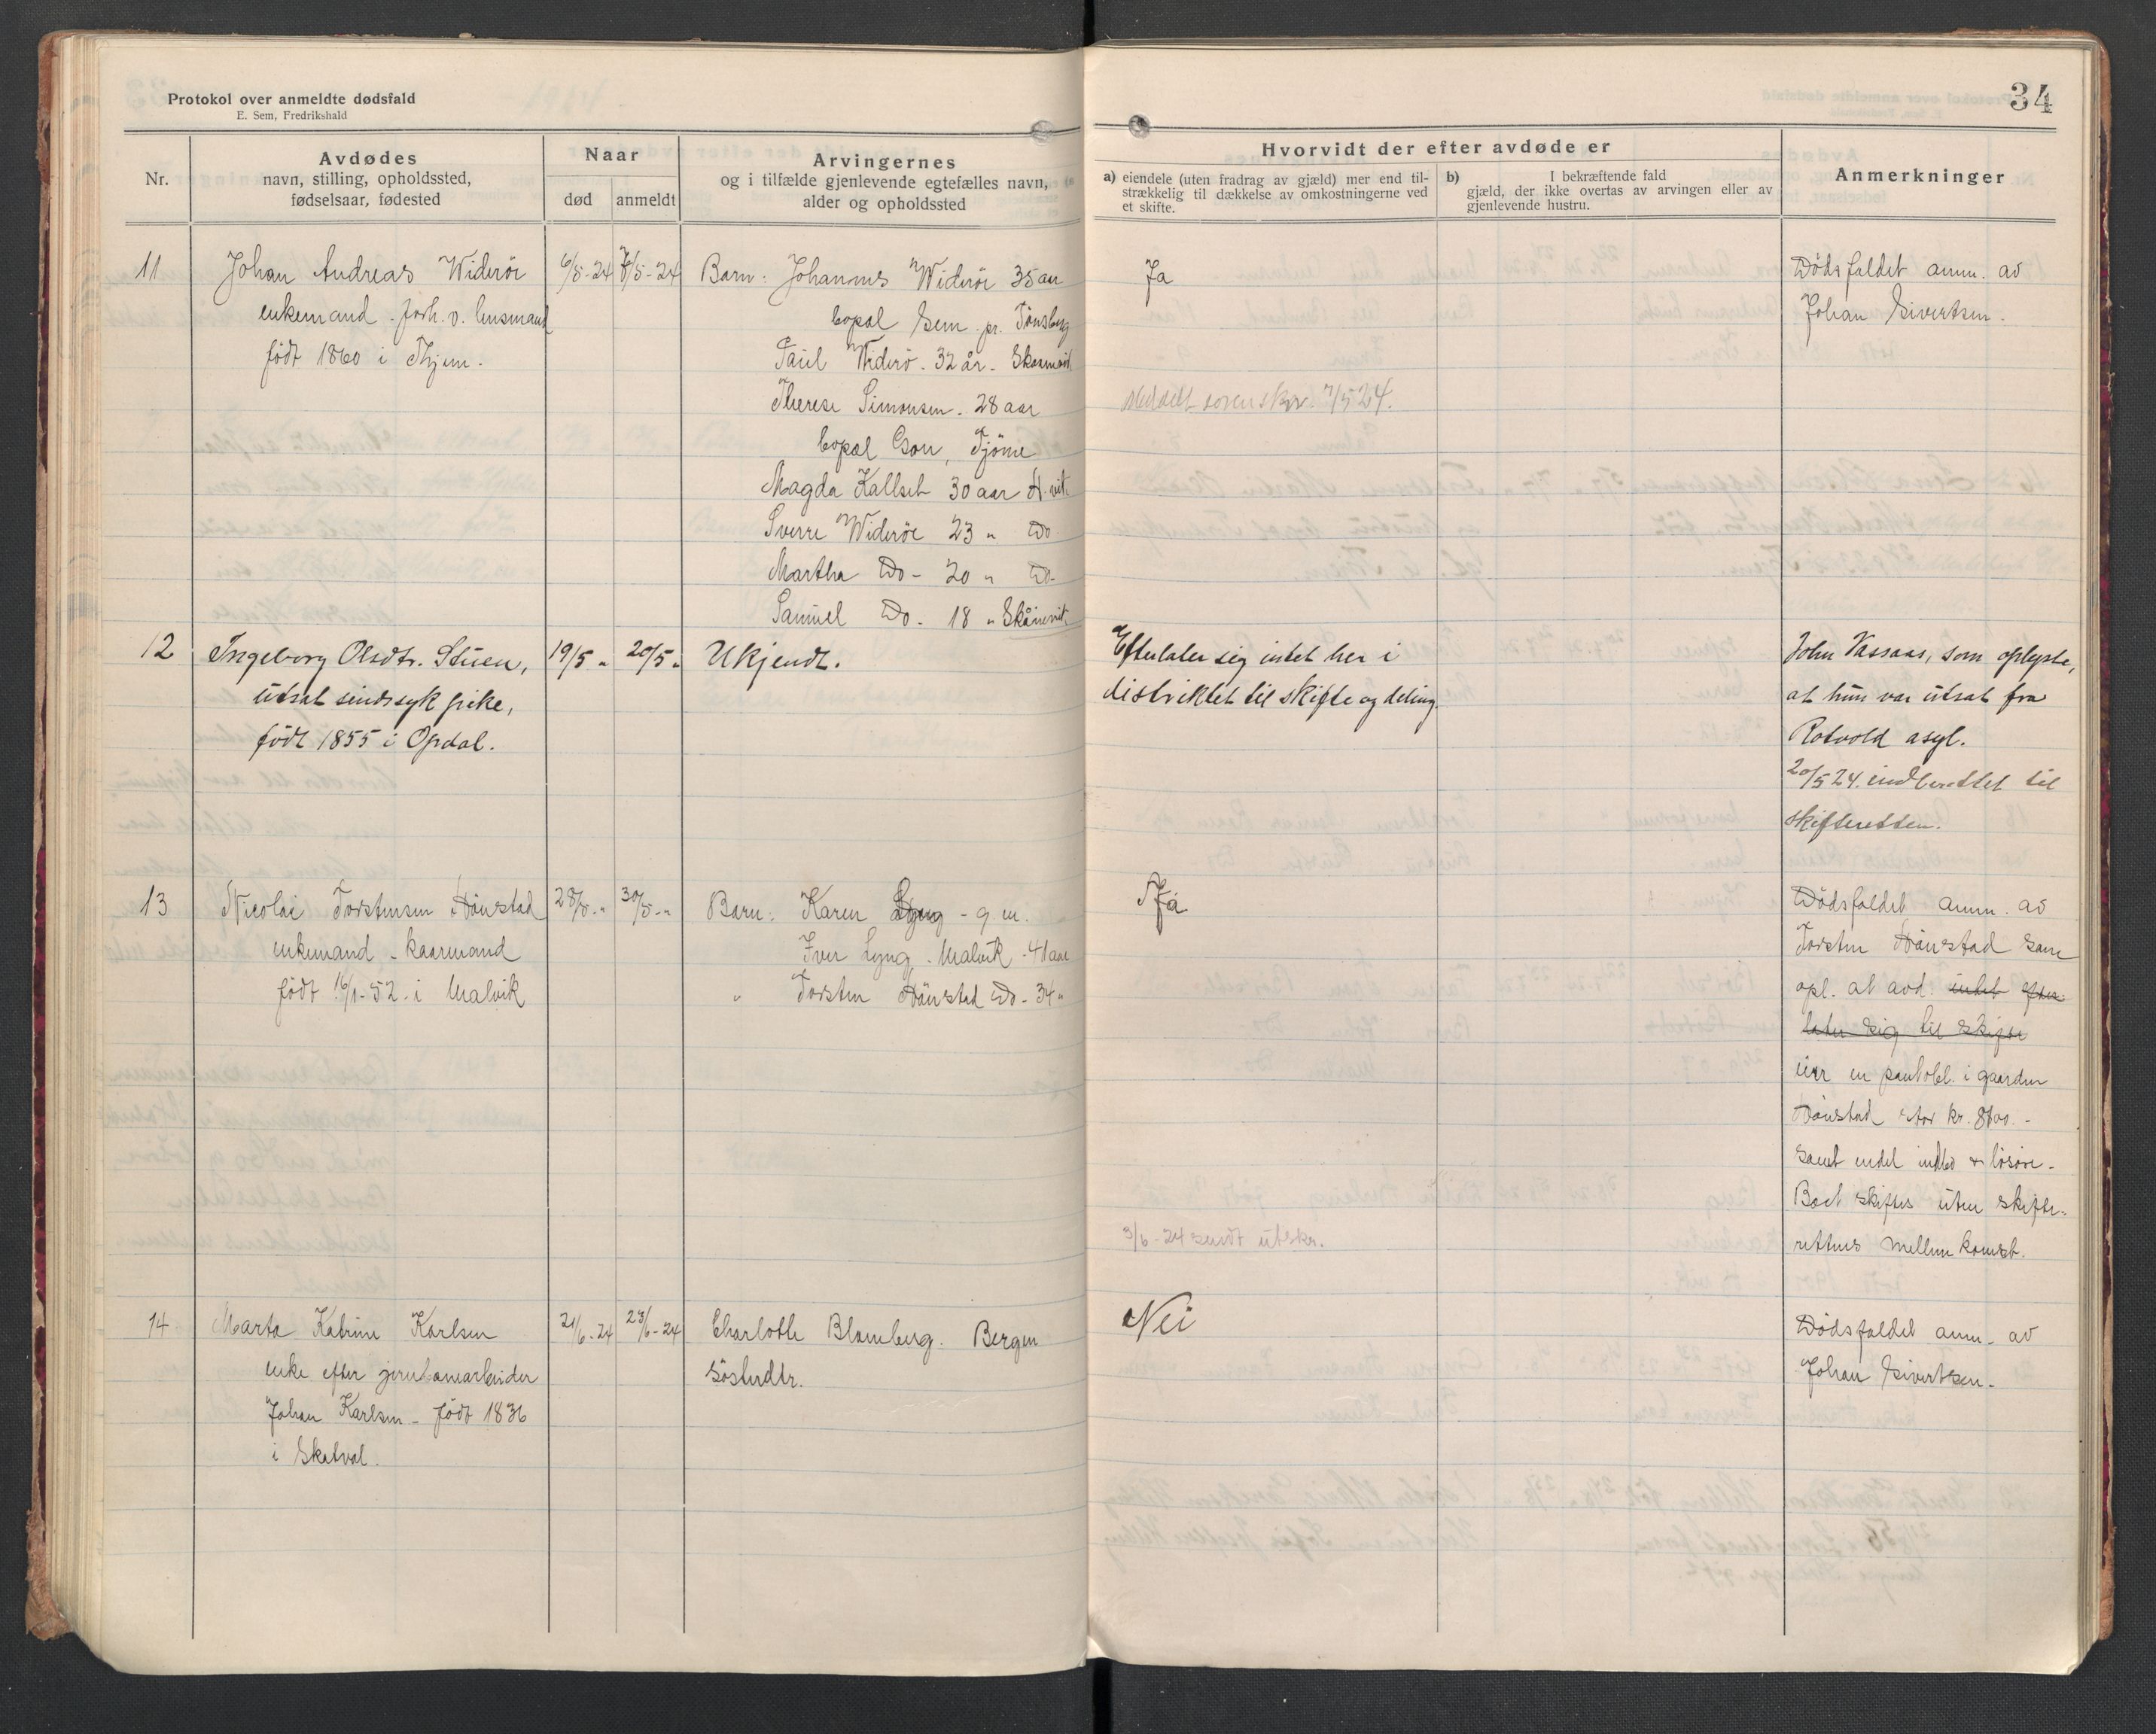 Protokol over anmeldte dødsfald
E. Sem, Fredrikshald
Nr.
Avdødes
navn, stilling, opholdssted,
fødselsaar, fødested
Naar
død
anmeldt
Arvingernes
og i tilfælde gjenlevende egtefælles navn,
alder og opholdssted
11
Johan Andreas Wideröe
enkemand . forh. v. husmand
född 1860 i Thjem.
6/5-24
7/5-24
Barn: Johannes Wideröe 35 aar
bopæl Sem pr. Tönsberg
Paul Widerö. 32 år.
Therese Simonsen. 28 aar
bopæl Tjöme
Magda Kallset 30 aar H.vik.
Sverre Wideröe 23 " Do
Martha Do - 20 " Do-
Samuel Do. 18 "
12
Ingeborg Olsdtr. Stuen,
utsat sindssyk pike,
född 1855 i Opdal.
19/5 "
20/5 "
Ukjendt.
13
Nicolai Torstensen Hönstad
enkemand - kaarmand
född 16/1-52 - i Malvik
28/5 - "
30/5 - "
Barn: Karen Lyng - g. m.
Iver Lyng - Malvik - 41 aar
" Torsten Hönstad Do - 34 "
14
Marta Katrine Karlsen
enke efter jernbanearbeider
Johan Karlsen - född 1836
i Skatval.
21/6-24
23/6-24
Charlotte Blomberg. Bergen
Sösterdtr.
34
Hvorvidt der efter avdøde er
a) eiendele (uten fradrag av gjæld) mer end til-
strækkelig til dækkelse av omkostningerne ved
et skifte.
b) I bekræftende fald
gjæld, der ikke overtas av arvingen eller av
gjenlevende hustru.
Anmerkninger
Ja
Meddelt sorenskr. 7/5 24.
Dödsfaldet anm. av
Johan Sivertsen.
Efterlater sig intet her i
distriktet til skifte og deling.
John Vassaas, som oplyste,
at hun var utsat fra
Rotvold asyl.
20/5 24. indberettet til
skifteretten.
Ja
3/6-24 sendt utskr.
Dödsfaldet anm. av
Torsten Hönstad som
opl. at avd. intet efter
later sig til skifte
eier en pantobl. i gaarden
Hönstad stor kr. 8600.-
samt endel indbo & lösöre-
Boet skiftes uten skifte-
rettens mellemkomst.
Nei
Dödsfaldet anm. av
Johan Sivertsen-